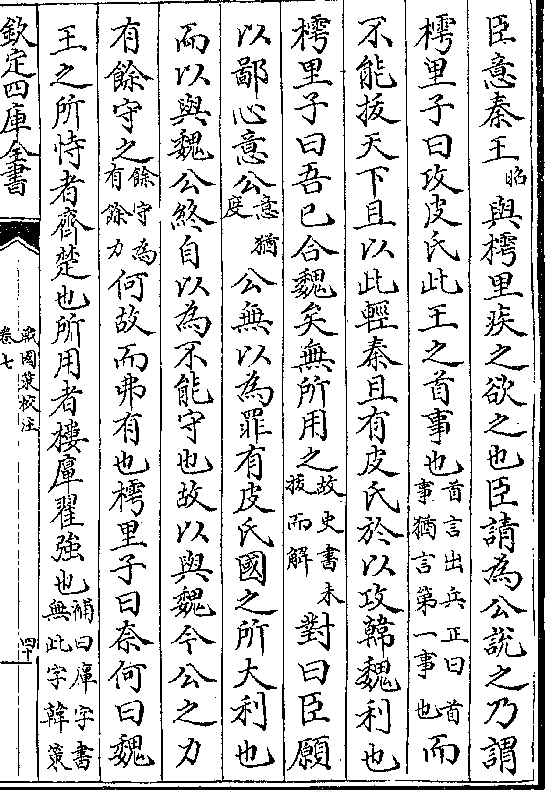 臣意秦王昭與樗里疾之欲之也臣請為公說之乃謂
樗里子曰攻皮氏此王之首事也首言出兵正曰首事猶言第一事也而
不能拔天下且以此輕秦且有皮氏於以攻韓魏利也
樗里子曰吾已合魏矣無所用之故史書未拔而解對曰臣願
以鄙心意公意猶度公無以為罪有皮氏國之所大利也
而以與魏公終自以為不能守也故以與魏今公之力
有餘守之餘守為有餘力何故而弗有也樗里子曰奈何曰魏
王之所恃者齊楚也所用者樓㢑翟強也補曰㢑字書無此字韓策
欽定四庫全書
戰國策校注
卷七
四十